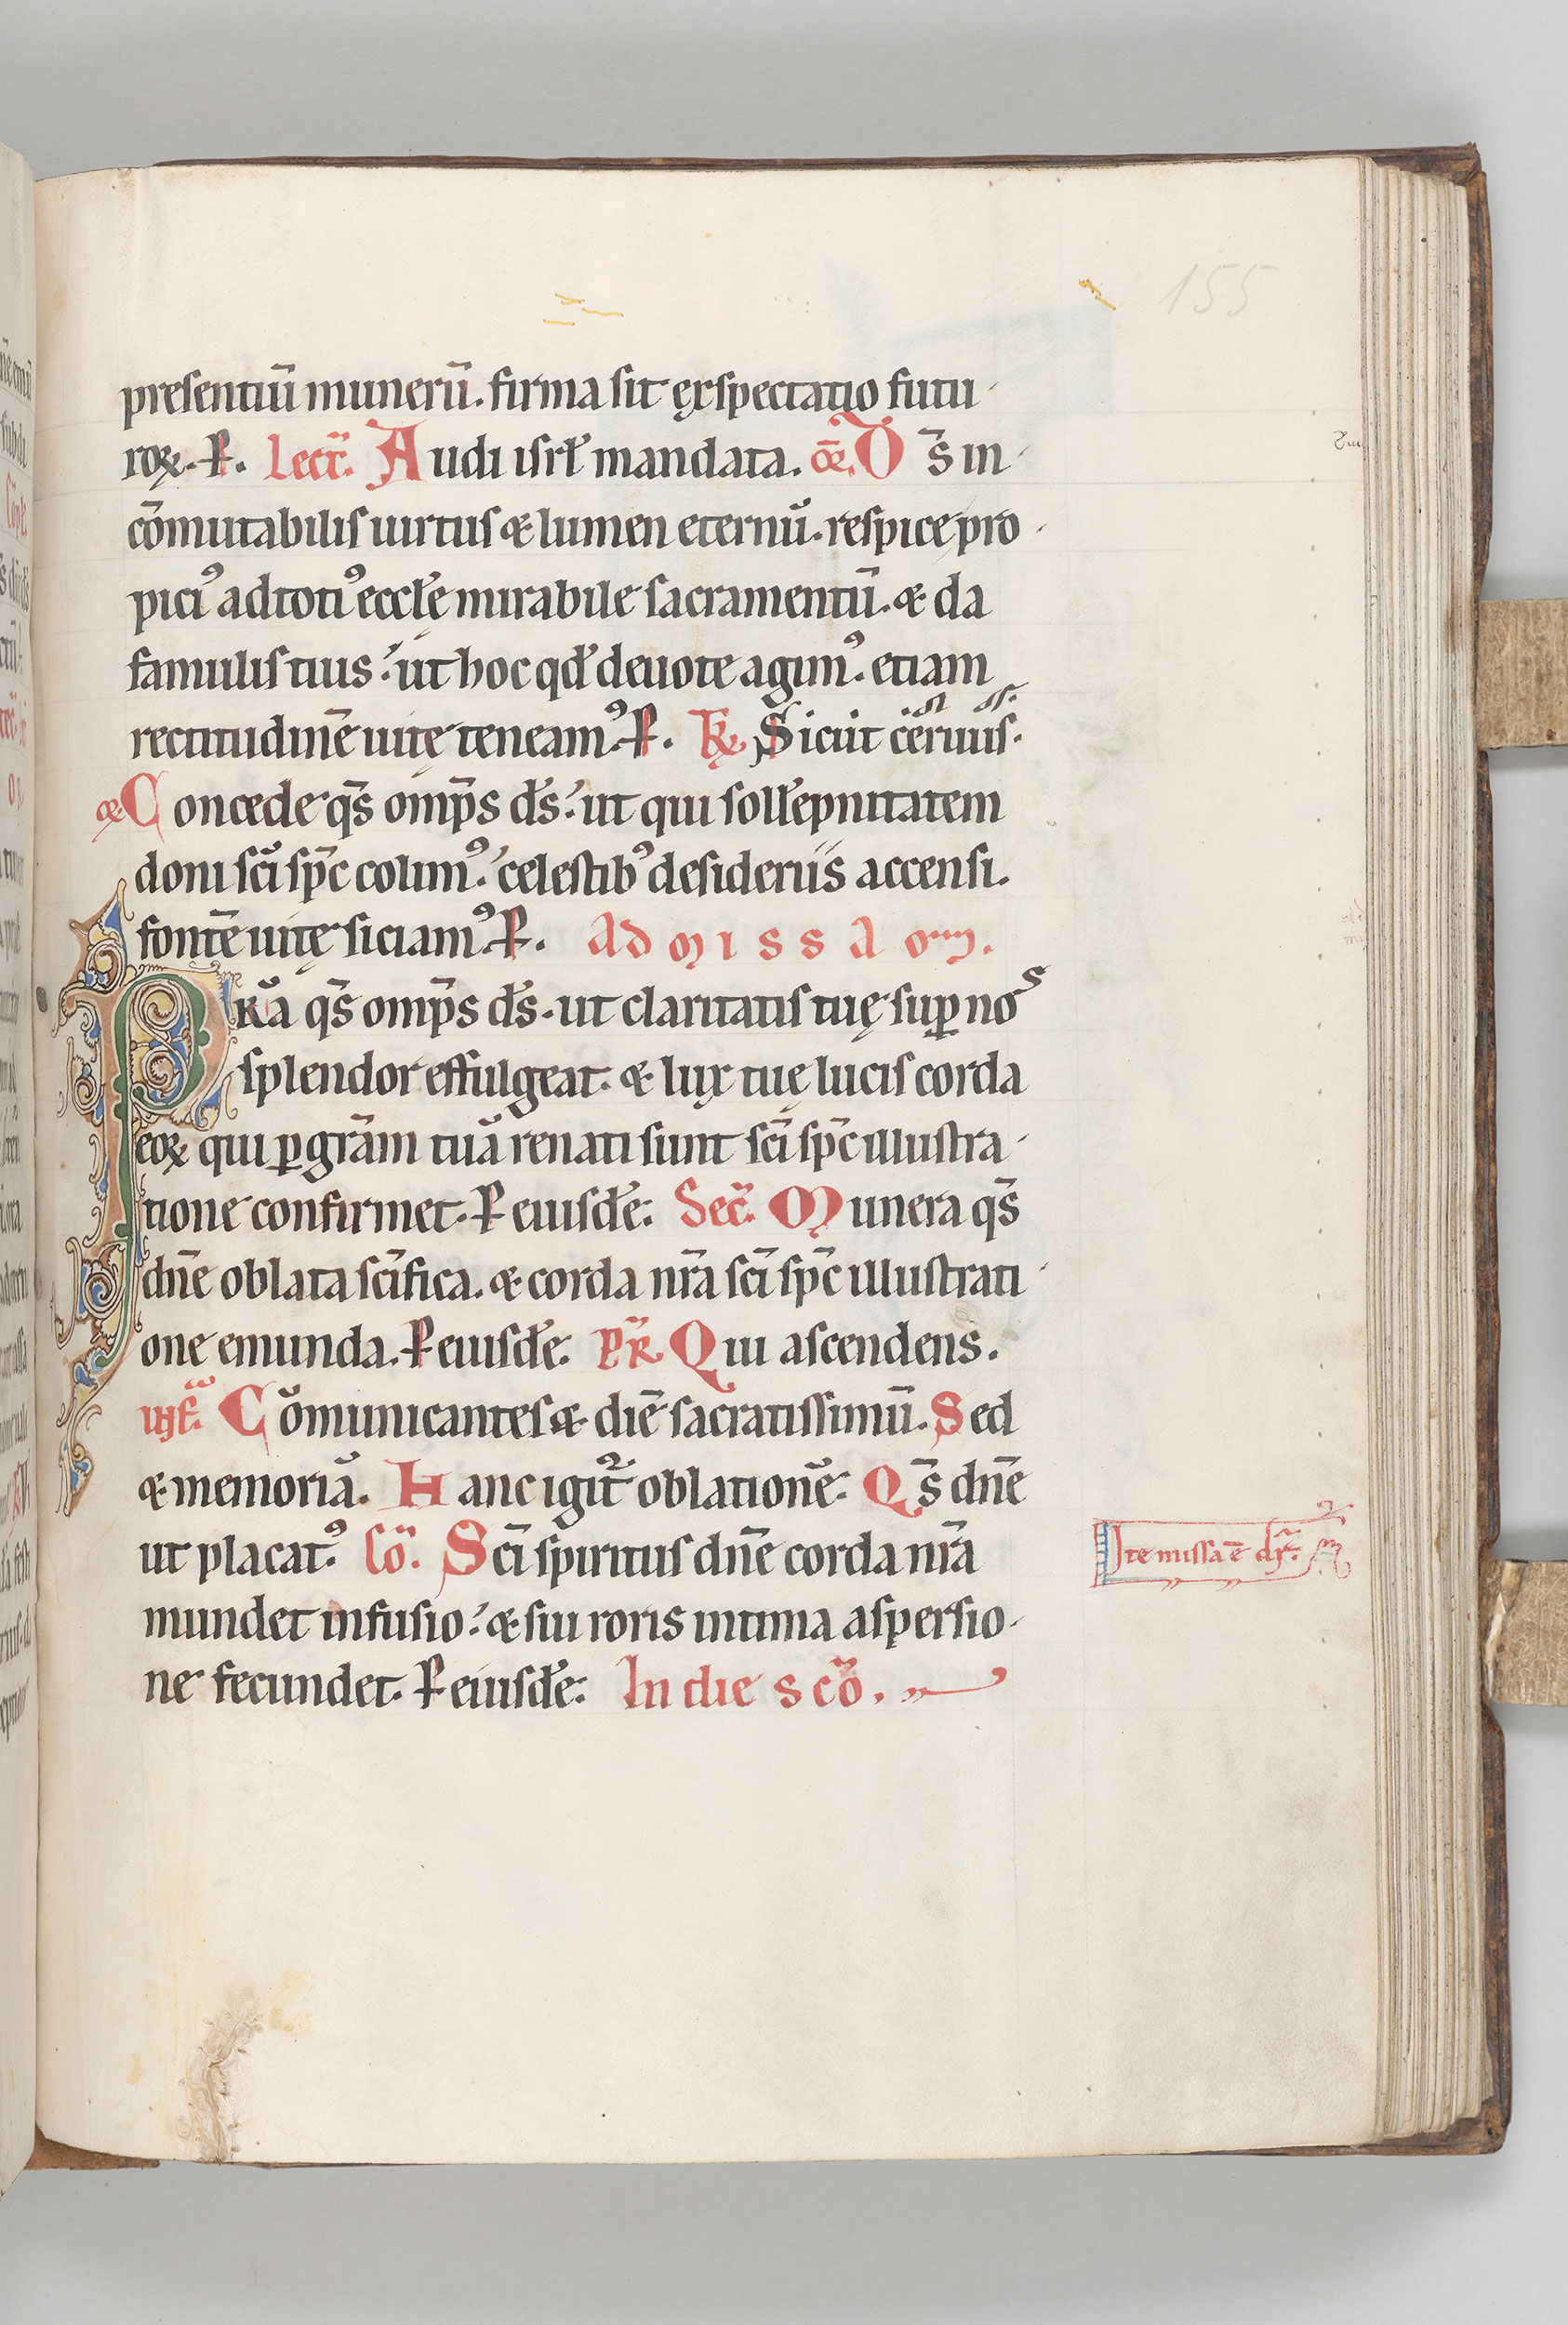 155
presentiū munerū. firma sit ęxspectatio futu-
roꝝ. P. Lect̄. Audi isrł mandata. or̄. Ds̄ in-
cōmutabilis uirtus & lumen eternū. respice pro-
piciꝰ ad totiꝰ ecclȩ̄ mirabile sacramentū. & da
famulis tuis. ut hoc qđ deuote agimꝰ. etiam
rectitudinē uitę teneamꝰ. P. Tr̄ Sicut ceruus.
or̄ Concede qs̄ omp̄s ds̄. ut qui sollēpnitatem
doni sc̄i sp̄c colimꝰ. celestibꝰ desideriis accensi.
fontē uitę siciamꝰ. P. Ad missam.
PRā qs̄ omp̄s ds̄. ut claritatis tuę suꝑ nos
splendor effulgeat. & lux tuę lucis corda
eoꝝ qui ꝑ grām tuā renati sunt sc̄i sp̄c illustra-
tione confirmet. P eiusdē. Sec̄. Munera qs̄
dn̄e oblata sc̄ifica. & corda nr̄a sc̄i sp̄c illustrati-
one emunda. P eiusdē. Pr̄ Qui ascendens.
inf̄. Cōmunicantes & diē sacratissimū. Sed
& memoriā. Hanc igit̄ oblationē. Qs̄ dn̄e
ut placatꝰ. Cō. Sc̄i spiritus dn̄e corda nr̄a
Ite missa ē
mundet infusio. & sui roris intima aspersio-
ne fecundet. P eiusdē. In die scō.